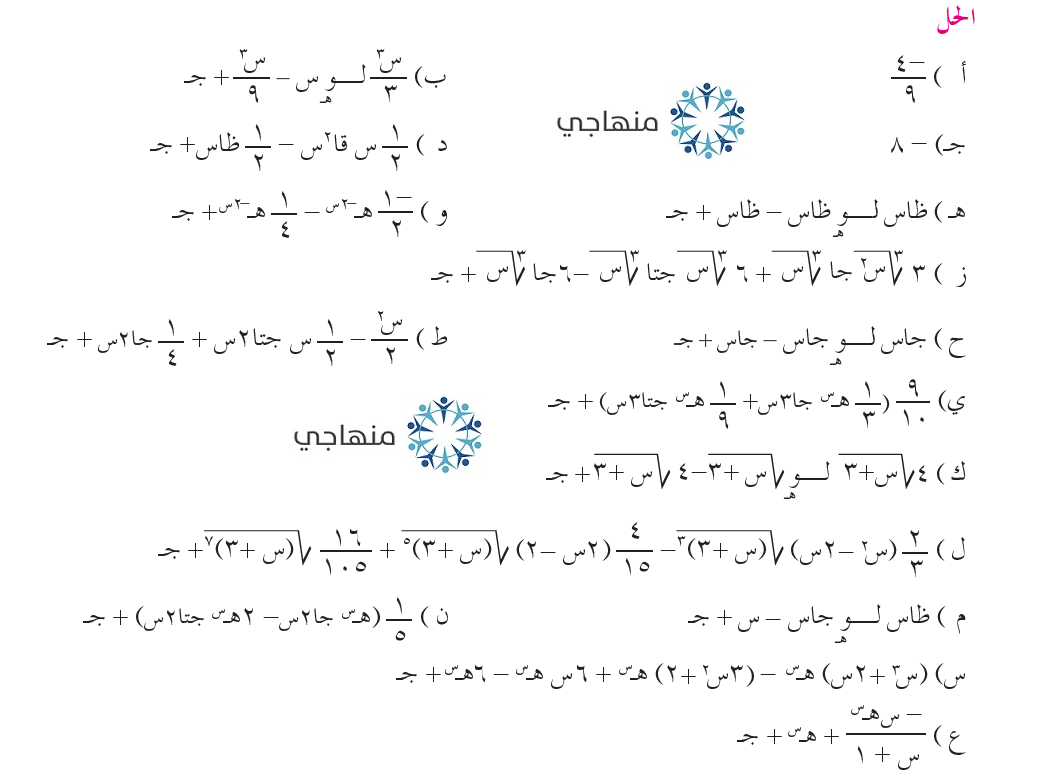 الحل
أ ) -٤/٩ ب) س³/٣ لــوهـ س - س³/٩ + جـ
منهاجي
جـ) - ٨ د ) ١/٢ س قا²س - ١/٢ ظاس + جـ
هـ ) ظاس لــوهـ ظاس - ظاس + جـ و ) -١/٢ هـ^-٢س - ١/٤ هـ^-٢س + جـ
ز ) ٣ ∛س² جا ∛س + ٦ ∛س جتا ∛س - ٦جا ∛س + جـ
ح ) جاس لــوهـ جاس - جاس + جـ ط ) س²/٢ - ١/٢ س جتا٢س + ١/٤ جا٢س + جـ
ي) ٩/١٠ (١/٣ هـ^س جا٣س + ١/٩ هـ^س جتا٣س) + جـ
منهاجي
ك ) ٤ √(س+٣) لــوهـ √(س+٣) - ٤ √(س+٣) + جـ
ل ) ٢/٣ (س² - ٢س) √(س+٣)³ - ٤/١٥ (٢س - ٢) √(س+٣)⁵ + ١٦/١٠٥ √(س+٣)⁷ + جـ
م ) ظاس لــوهـ جاس - س + جـ ن ) ١/٥ (هـ^س جا٢س - ٢هـ^س جتا٢س) + جـ
س) (س³ + ٢س) هـ^س - (٣س² + ٢) هـ^س + ٦س هـ^س - ٦هـ^س + جـ
ع ) - س هـ^س/س + ١ + هـ^س + جـ